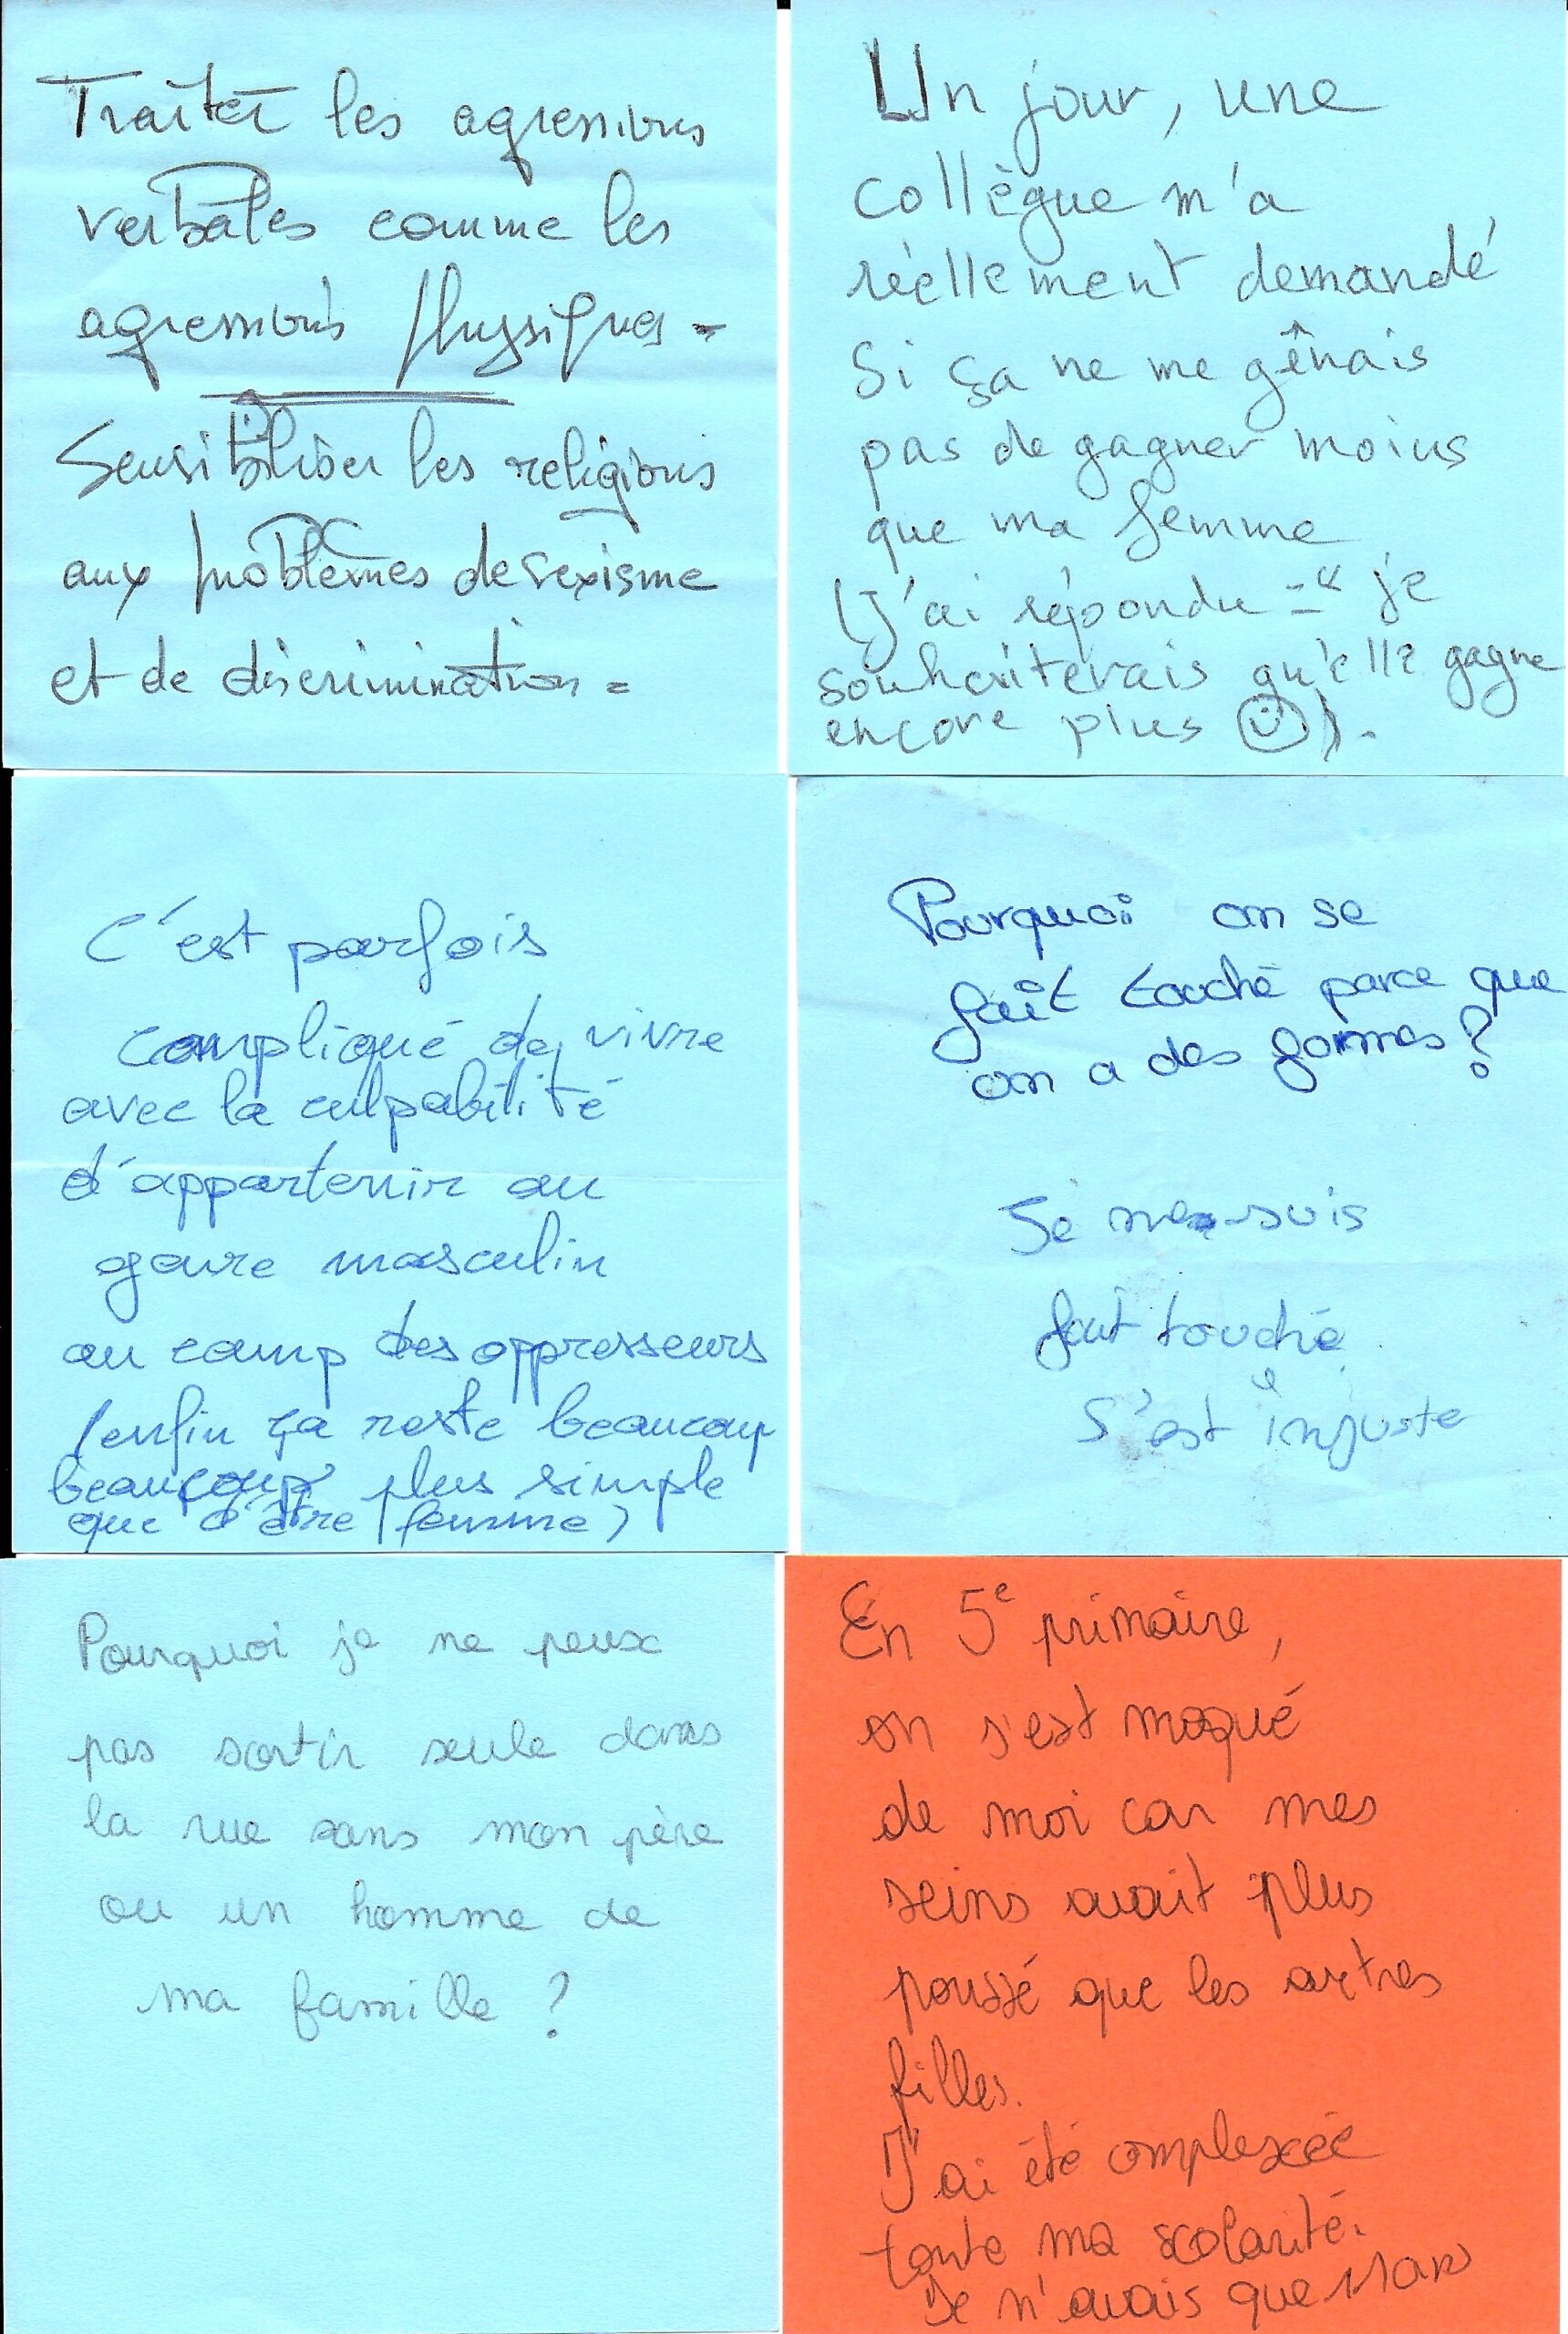 Traiter les agressions
verbales comme les
agressions physiques -
Sensibiliser les religions
aux problèmes de sexisme
et de discrimination =
Un jour, une
collègue m'a
réellement demandé
si ça ne me gênais
pas de gagner moins
que ma femme
(J'ai répondu = " je
souhaiterais qu'elle gagne
encore plus ☺).
C'est parfois
compliqué de vivre
avec la culpabilité
d'appartenir au
genre masculin
au camp des oppresseurs
(enfin ça reste beaucoup
beaucoup plus simple
que d'être femme)
Pourquoi on se
fait touché parce que
on a des formes?
Je me suis
fait touché
S'est injuste
Pourquoi je ne peux
pas sortir seule dans
la rue sans mon père
ou un homme de
ma famille ?
En 5e primaire,
on s'est moqué
de moi car mes
seins avait plus
poussé que les autres
filles.
J'ai été complexée
toute ma scolarité.
Je n'avais que 11 ans